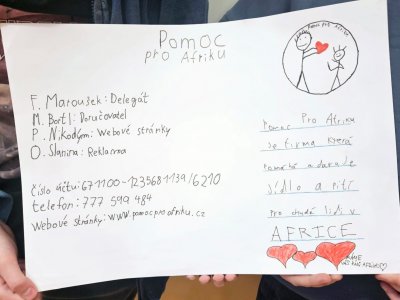 Pomoc
pro Afriku
Pomoc pro Afriku
F. Maroušek: Delegát
M. Bortl: Doručovatel
P. Nikodým: Webové stránky
O. Slanina: Reklamma
číslo účtu: 671100-1235681139/6210
telefon: 777 599 484
Webové stránky: www.pomocproafriku.cz
Pomoc Pro Afriku
se firma která
pomáhá a daruje
jídlo a pití
pro chudé lidi v
AFRICE